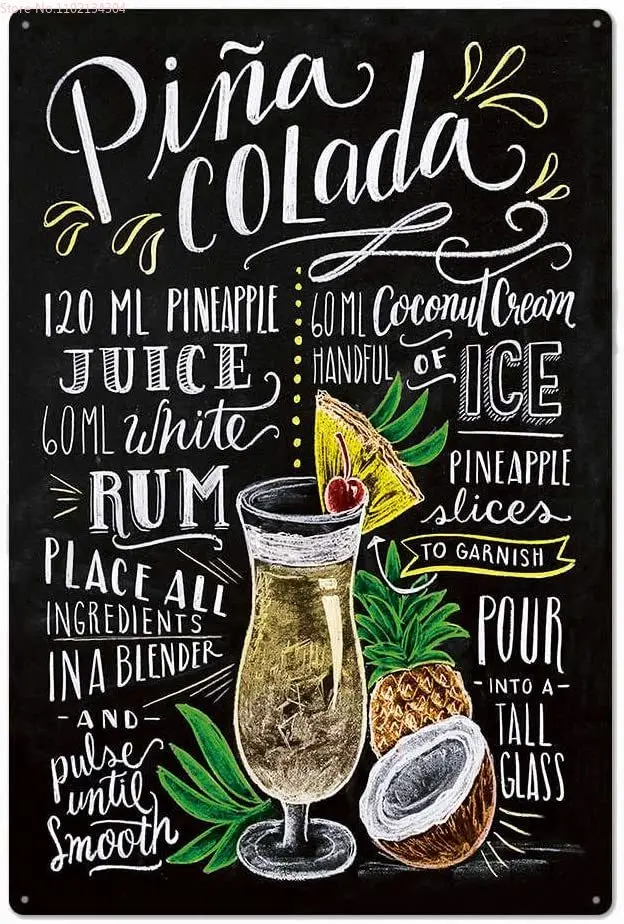 Store No.1102134304
Piña
COLada
120 ML PINEAPPLE
JUICE
60ML white
RUM
60ML Coconut Cream
HANDFUL OF ICE
PINEAPPLE
slices
TO GARNISH
PLACE ALL
INGREDIENTS
IN A BLENDER
-AND-
pulse
until
Smooth
POUR
-INTO A-
TALL
GLASS